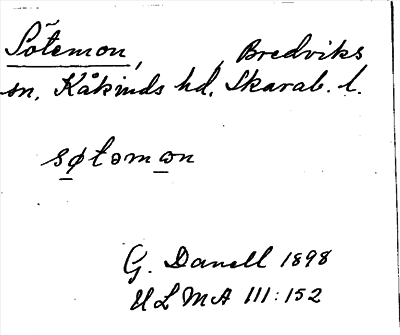 Sötemon, , Bredviks
sn, Kåkinds hd, Skarab. l.
søtəmɷn
G. Danell 1898
ULMA III:152